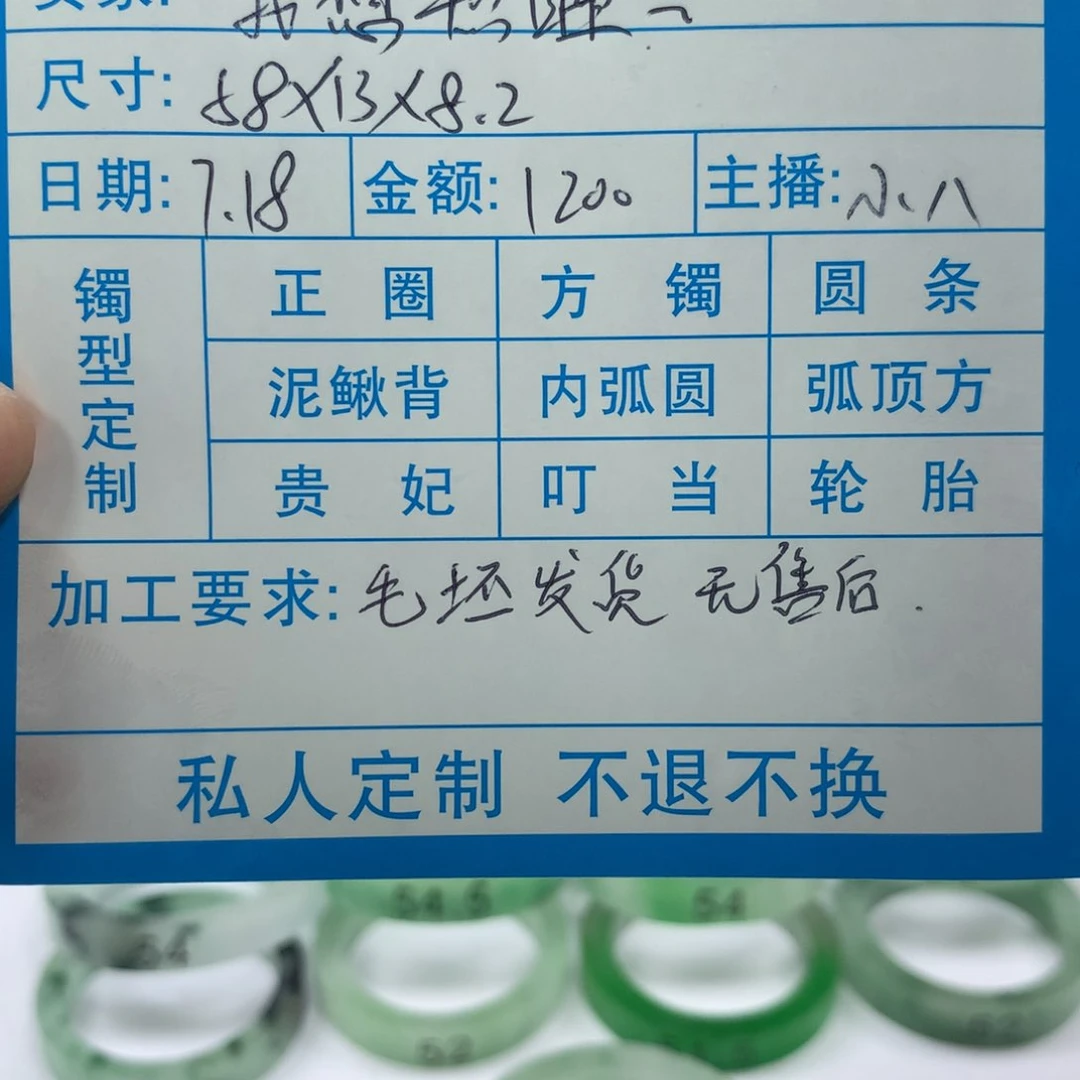 尺寸: 58X13X8.2
日期: 7.18 金额: 1200 主播: 小八
镯型定制
正圈 方镯 圆条
泥鳅背 内弧圆 弧顶方
贵妃 叮当 轮胎
加工要求: 毛坯发货 无售后.
私人定制 不退不换
54.5 54
54
52